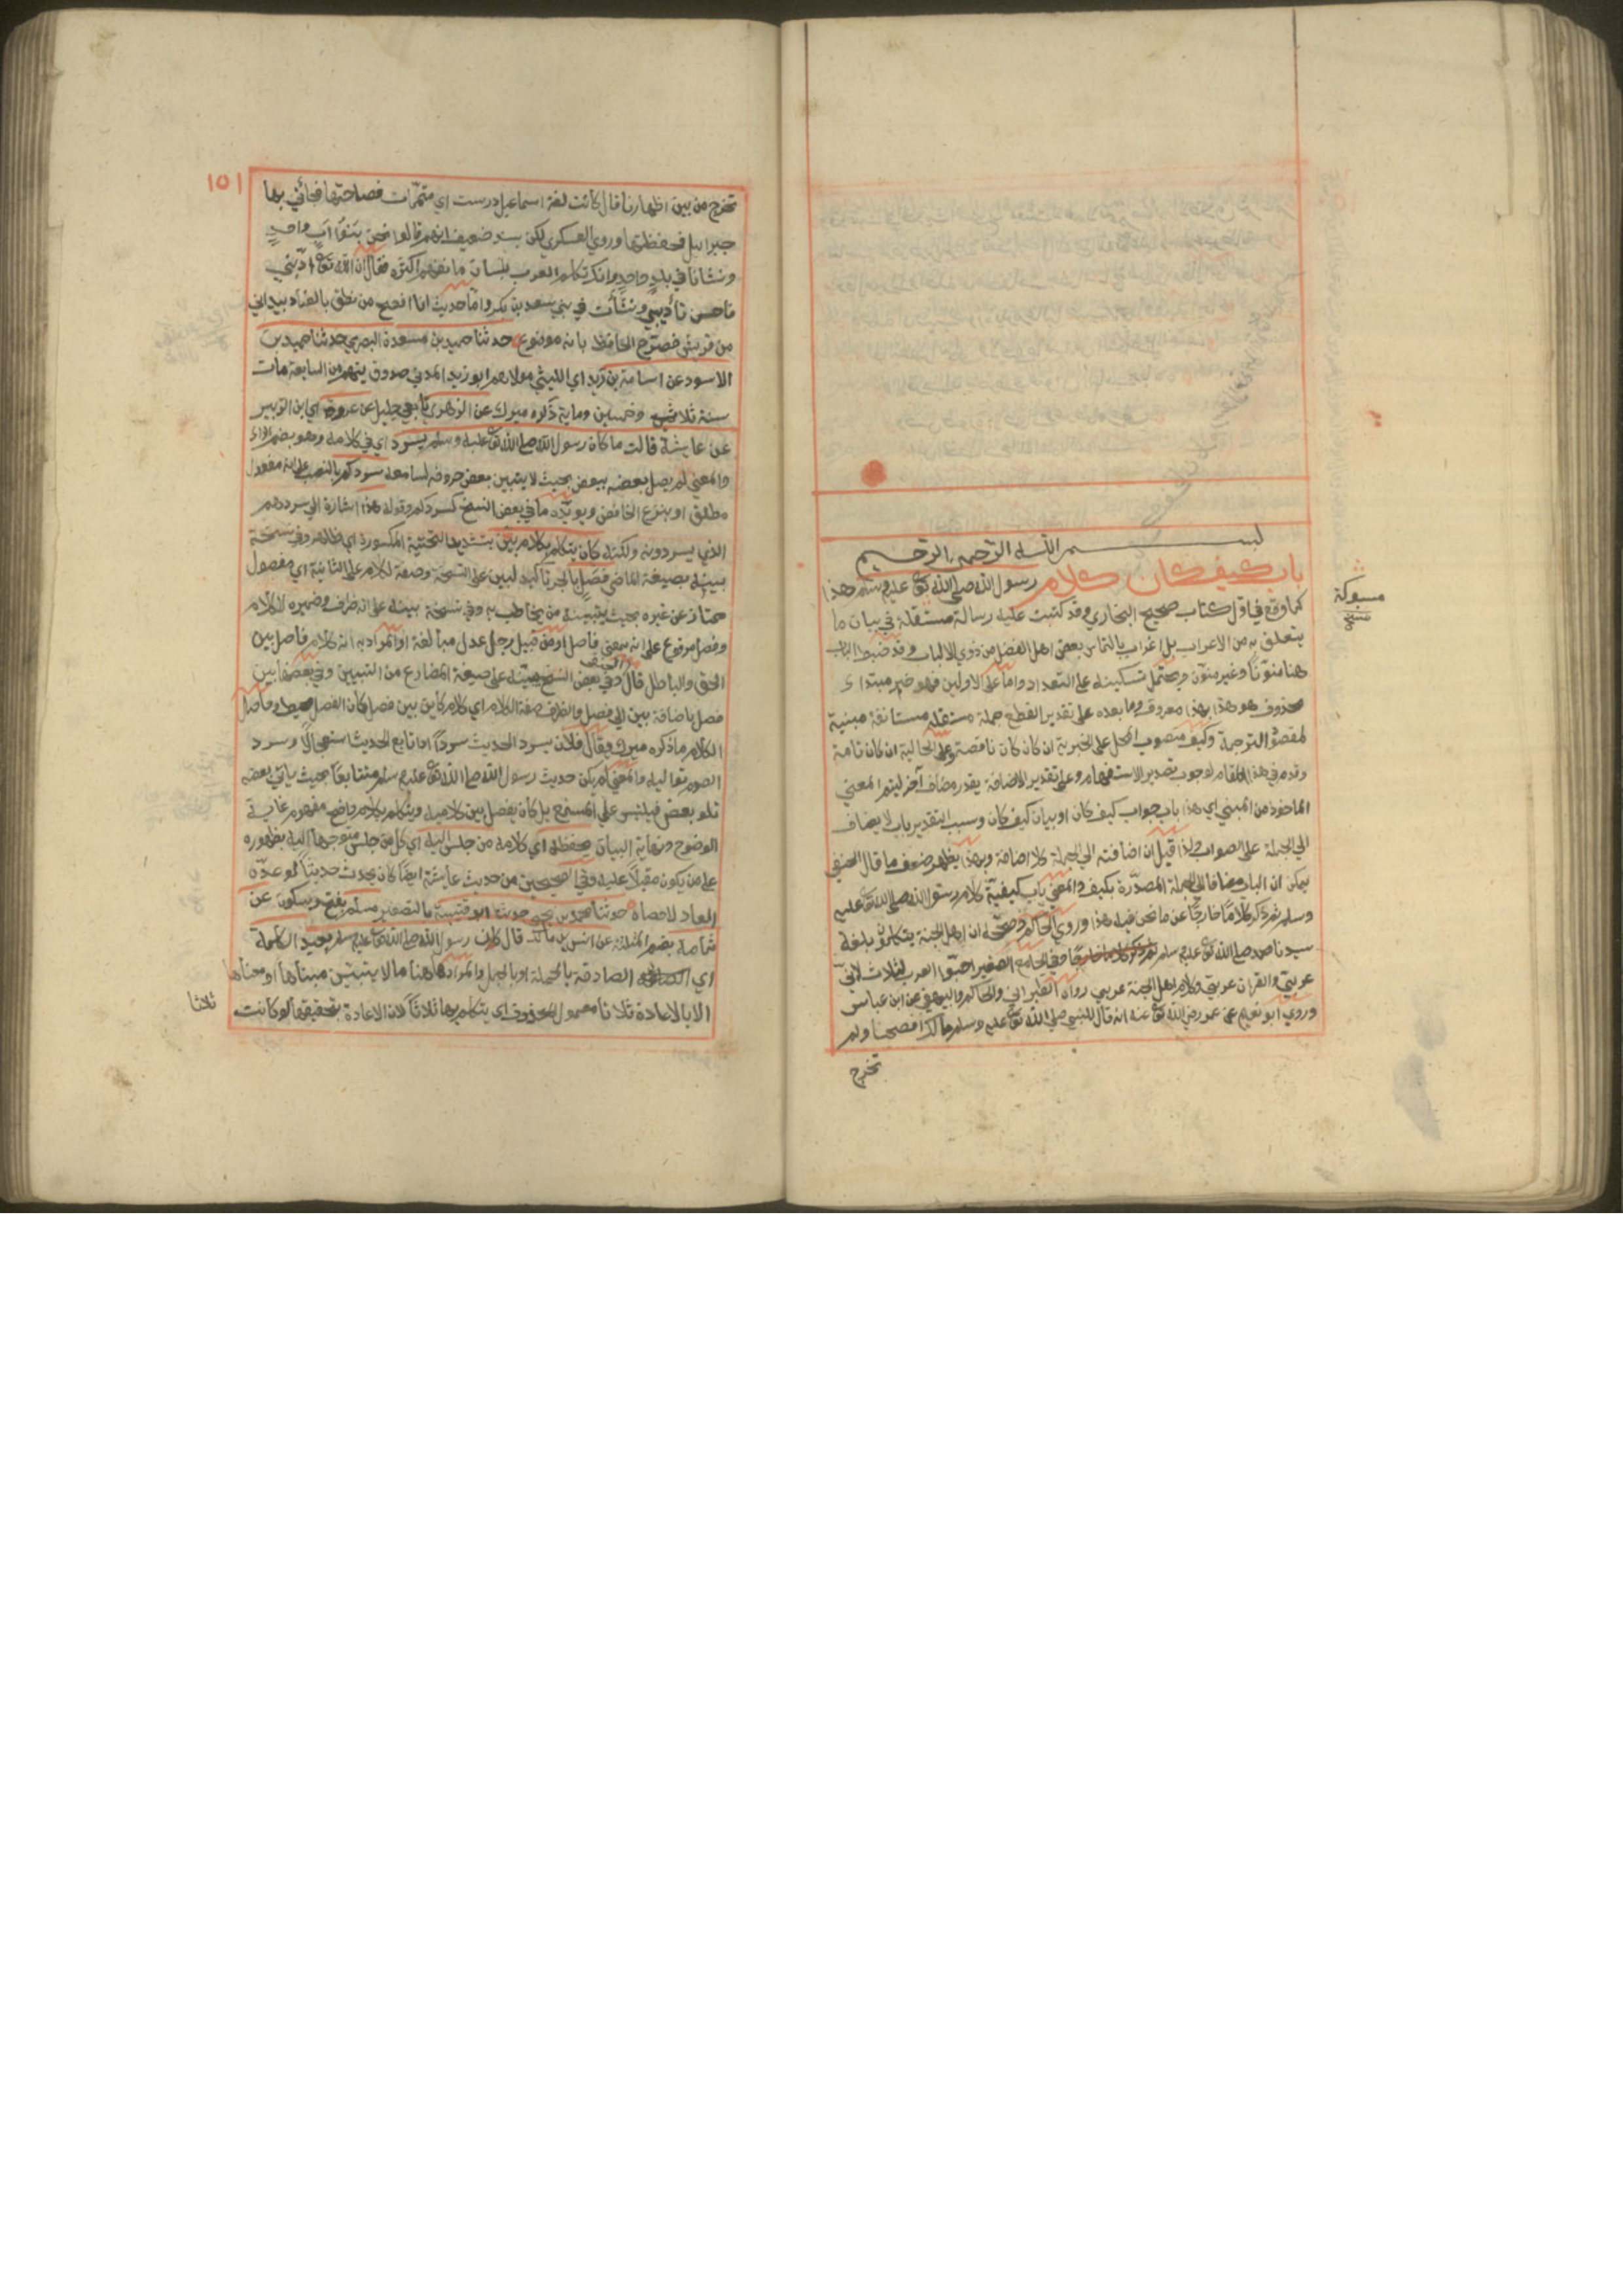 بسم الله الرحمن الرحيم
باب كيف كان كلام رسول الله صلى الله تع عليه وسلم هذا
كما وقع في اول كتاب صحيح البخاري وقد كتبت عليه رسالة مستقلة في بيان ما
يتعلق به من الاعراب بل اغراب بالتماس بعض اهل الفضل من ذوي الالباب وقد ضبط الباب
هنا منونا وغير منون ويحتمل تسكينه على التعداد واما على الاولين فهو خبر مبتداء
محذوف هو هذا بهذا معروف وما بعده على تقدير القطع جملة مستقلة مستانفة مبنية
لمقصود الترجمة وكيف منصوب المحل على الخبرية ان كان كان ناقصة وعلى الحالية ان كان تامة
وقدم في هذا المقام لوجوب تصدير الاستفهام وعلى تقدير الاضافة يقدر مضاف آخر ليتم المعني
الماخوذ من المبني اي هذا باب جواب كيف كان او بيان كيف كان وسبب التقدير باب لا يضاف
الي الجملة على الصواب ولذا قيل ان اضافته الي الجملة كلا اضافة وبهذا يظهر ضعف ما قال الحنفي
يمكن ان الباب مضافا الي الجملة المصدرة بكيف والمعني باب كيفية كلام رسول الله صلى الله تع عليه
وسلم ثم ذكر كلاما خارجا عن ما نحن فيه هذا وروي الحاكم وصححه ان اهل الجنة يتكلمون بلغة
سيدنا محمد صلى الله تع عليه وسلم وفي الجامع الصغير احبوا العرب لثلاث لاني
عربي والقران عربي وكلام اهل الجنة عربي رواه الطبراني والحاكم والبيهقي عن ابن عباس
وروي ابو نعيم عن عمر رضي الله تع عنه انه قال للنبي صلى الله تع عليه وسلم مالك افصحنا ولم
تخرج
مسبوكة
١٥١
تخرج من بين اظهارنا قال كانت لغة اسماعيل درست اي متممات فصاحتها فجائني بها
جبرائيل فحفظتها وروي العسكري لكن بسند ضعيف انهم قالوا نحن بنوا اب واحد
ونشانا في بلد واحد وانك تكلم العرب بلسان ما نفهم اكثره فقال ان الله تع ادبني
فاحسن تأديبي ونشأت في بني سعد بن بكر واما حديث انا افصح من نطق بالضاد بيد اني
من قريش فصرح الحافظ بانه موضوع حدثنا حميد بن مسعدة البصري حدثنا حميد بن
الاسود عن اسامة بن زيد اي الليثي مولاهم ابو زيد المدني صدوق يتهم من السابعة مات
سنة ثلاث وخمسين وماية ذكره ميرك عن الزهري تابعي جليل عن عروة اي ابن الزبير
عن عايشة قالت ما كان رسول الله صلى الله تع عليه وسلم يسرد اي في كلامه وهو بضم الراء
والمعني لم يصل بعضه ببعض بحيث لا يتبين بعض حروفه لسامعه سردكم بالنصب على انه مفعول
مطلق او بنزع الخافض ويؤيده ما في بعض النسخ كسردكم وقوله هذا اشارة الي سردهم
الذي يسردونه ولكنه كان يتكلم بكلام بين بتشديد التحتية المكسورة اي ظاهر وفي نسخة
بينه بصيغة الماضي فصل بالجر تاكيد لبين على النسخة وصفة لكلام على الثانية اي مفصول
ممتاز عن غيره بحيث يتبينه من يخاطب به وفي نسخة بينه على انه ظرف وضميره للكلام
وفصل مرفوع على انه بمعني فاصل او من قبيل رجل عدل مبالغة او المراد به انه كلام فاصل بين
الحق والباطل قال الحنفي وفي بعض النسخ يبينه على صيغة المضارع من التبيين وفي بعضها بين
فصل باضافة بين الي فصل والظرف صفة الكلام اي كلام كاين بين فصل كان الفصل محيط وحاصل
الكلام ما ذكره ميرك ويقال فلان يسرد الحديث سردا اذا تابع الحديث استعجالا وسرد
الصوم تواليه والمعني لم يكن حديث رسول الله صلى الله تع عليه وسلم متتابعا بحيث ياتي بعضه
تلو بعض فيلتبس على المستمع بل كان يفصل بين كلاميه ويتكلم بكلام واضح مفهوم غاية
الوضوح ونهاية البيان يحفظه اي كلامه من جلس اليه اي كل من جلس متوجها اليه بظهوره
على من يكون مقبلا عليه وفي الصحيحين من حديث عايشة ايضا كان يحدث حديثا لو عده
العاد لاحصاه حدثنا محمد بن يحيى حدثنا ابو قتيبة بالتصغير مسلم بفتح وسكون عن
ثمامة بضم المثلثة عن انس بن مالك قال كان رسول الله صلى الله تع عليه وسلم يعيد الكلمة
اي الصادقة بالجملة او بالجمل والمراد ههنا ما لا يتبين مبناها او معناها
الا بالاعادة ثلاثا معمول لمحذوف اي يتكلم بها ثلاثا لان الاعادة بحقيقتها لو كانت
ثلاثا